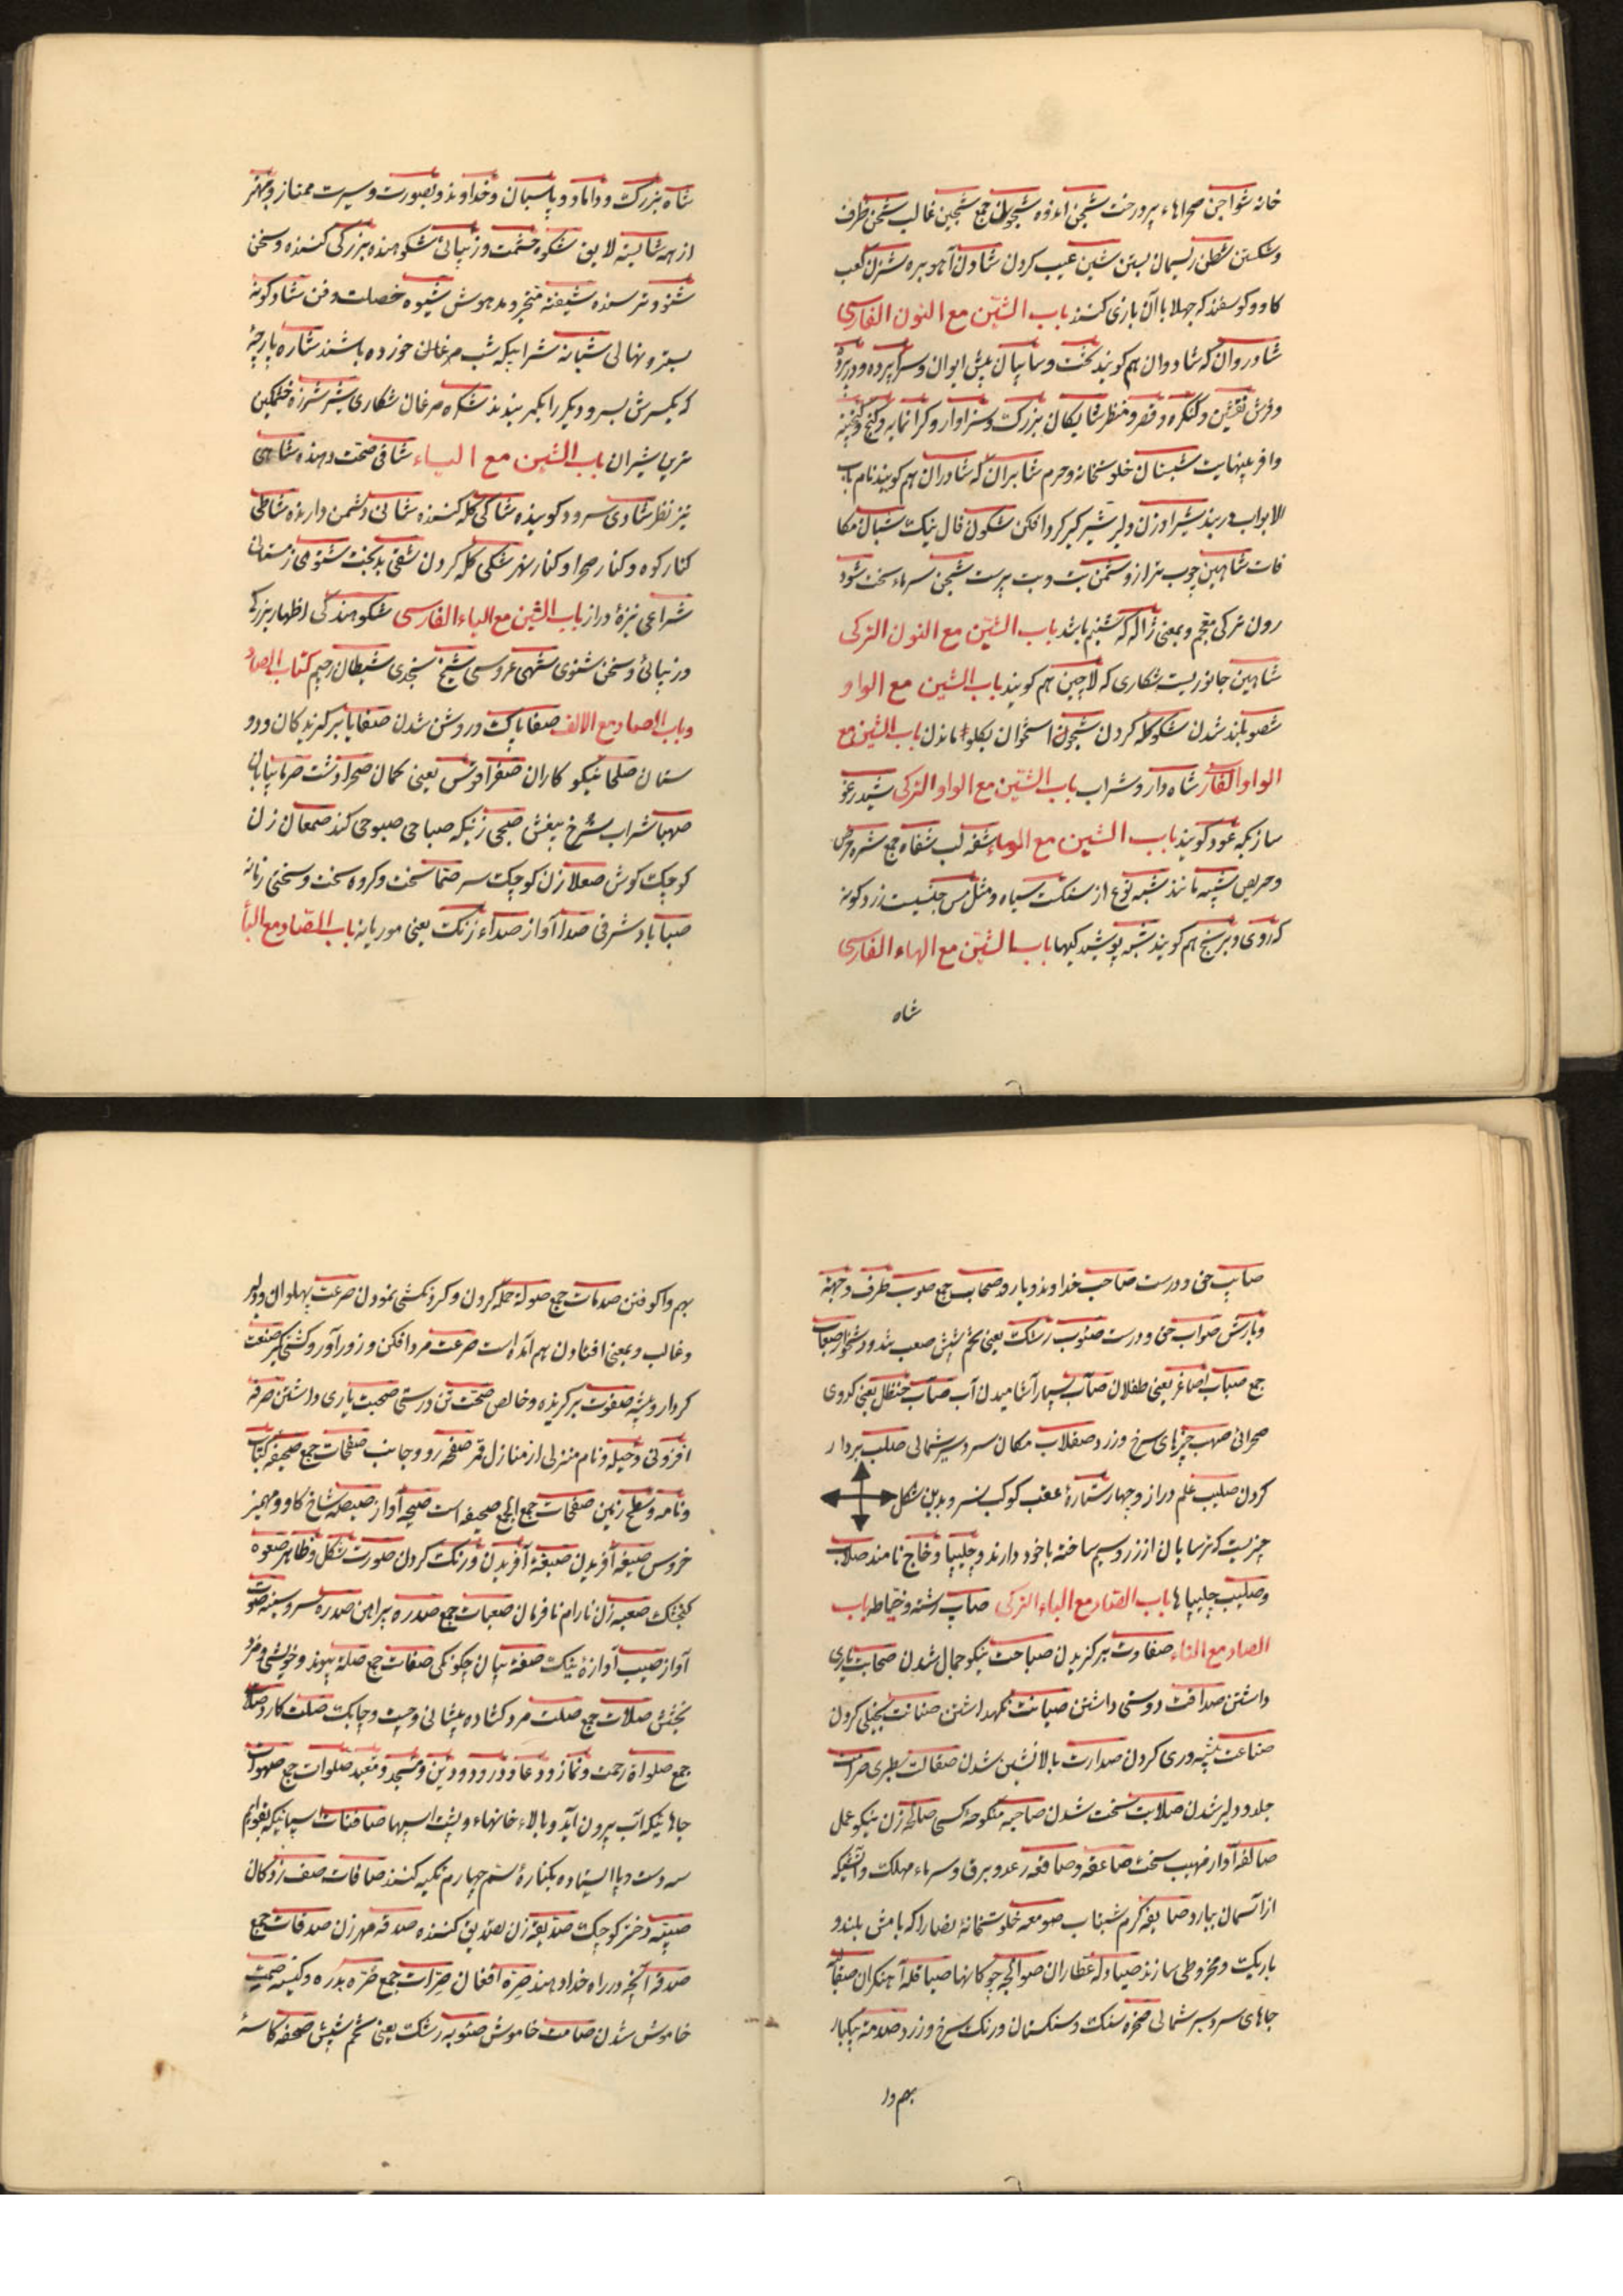 خانه شواجن صحراهاء پردرخت شجن اندوه شجون جمع شجین غالب شحن ظرف
وشکستن شطن ریسمان بستن شین عیب کردن شادن آهو بره شزن کعب
کاو و کوسفند که جهلا باآن بازی کنند باب الشین مع النون الفارسی
شادروان که شادوان هم کویند تخت وسایبان پیش ایوان وسراپرده و
وفرش نقشین وکنکره وقصر ومنظر شایکان بزرک وسزاوار وکرانمایه وکنج
وافر بینهایت شبستان خلوتخانه وحرم شابران که شاوران هم کویند نام باب
الابواب دربند شیراوژن دلیر شیرکیر کردافکن شکون فال نیک
فات شاهین چوب ترازو شمن بت وبت پرست شجن سرماء سخت شود
رون ترکی معجم وبمعنی ژاله که شبنم باشد باب الشین مع النون الترکی
شاهین جانوریست شکاری که لاچین هم کویند باب الشین مع الواو
شصو بلند شدن شکو کله کردن شجو استخوان بکلو ماندن باب الشین مع
الواو الفارسی شاه دارو شراب باب الشین مع الواو الترکی شیدرغو
سازیکه عود کویند باب الشین مع الهاء شفه لب شفاه جمع شره حرص
وحریص شبه مانند شبه نوع از سنک سیاه ومثل مس جنسیت زرد کونه
که روی وبرنج هم کویند باب الشین مع الهاء الفارسی
شاه
شاه بزرک وداماد وپاسبان وخداوند وبصورت وسیرت ممتاز وبهتر
از همه شایسته لایق شکوه حشمت وزیبائی شکوهنده بزرکی کننده وسخن
شنو وترسنده شیفته متحیر ومدهوش شیوه خصلت وفن شادکونه
بستر ونهالی شبانه شرابیکه شب مرغان خورده باشند شاره پارچهٔ
که یکسرش بسر ودیکر را بکمر بندند شکره مرغان شکاری شیر شرزه خشمکین
باب الشین مع الیاء شافی صحت دهنده شاهی
تیز نظر شادی سرود کوینده شاکی کله کننده شانی دشمن دارنده شاطی
کنار کوه وکنار صحرا وکنار نهر شکی کله کردن شقی بدبخت شتوی زمستانی
شراعی نیزهٔ دراز باب الشین مع الیاء الفارسی شکوهندکی اظهار بزرکی
وزیبائی وسخن شنوی شهی عروسی شیخ نجدی شیطان رجیم کتاب الصاد
وباب الصاد مع الالف صفا پاک وروشن شدن صفایا برکزیدکان ورود
ستان صلحا نیکوکاران صفرا قوس یعنی کمان صحرا دشت صرما بیابان
صهبا شراب سرخ بیغش صبحی زنیکه صباحی صبوحی کند صمعا زن
کوچک کوش صعلا زن کوچک سر صما سخت وکروه سخت وسختی زمانه
صبا باد شرقی صدا آواز صداء زنک یعنی موریانه باب الصاد مع الباء
صایب حق ودرست صاحب خداوند ویار وصحاب جمع صوب طرف وجهة
وبارش صواب حق ودرست صئوب رشک یعنی تخم شپش صعب تند ودشخوار صعاب
جمع صباب اصاغر یعنی طفلان صاب بسیار آشامیدن آب صاب حنظل یعنی کدوی
صحرائی صهب چیزهای سرخ وزرد صقلاب مکان سردسیر شمالی صلب بردار
کردن صلیب علم دراز وچهار ستارهٔ عقب کوکب نسر وبدین شکل
چیزیست که ترسایان از زر وسیم ساخته باخود دارند وچلیپا وخاج نامند صلاب
وصلیب چلیپاها باب الصاد مع الباء الترکی صاپ رشته وخیاطه باب
الصاد مع التاء صفاوت برکزیدن صباحت نیکو جمال شدن صحابت یاری
داشتن صداقت دوستی داشتن صیانت نکهداشتن ضنانت بخیلی کردن
صناعت پیشه وری کردن صدارت بالانشین شدن صرامت
جلد ودلیر شدن صلابت سخت شدن صاحبه منکوحه کسی صالحه زن نیکو عمل
آواز مهیب سخت صاعقه وصاقعه رعد وبرق وسرماء مهلک وآتشیکه
از آسمان ببارد صایفه کرم شبتاب صومعه خلوتخانهٔ نصارا که بامش بلند و
باریک ومخروطی سازند صیادله عطاران صوالجه چوکانها صیاقله آهنکران
جاهای سردسیر شمالی صخره سنک وسنکستان ورنک سرخ وزرد صدمه یکبار
بهم وا
بهم واکوفتن صدمات جمع صوله حمله کردن وکردنکشی نمودن صرعت پهلوان ودلیر
وغالب وبمعنی افتادن بهم آمده است صرعت مردافکن وزورآور وکشتی کیر صنعت
کردار وپیشه صفوت برکزیده وخالص صحت تن درستی صحبت یاری داشتن صرفه
افزونی وحیله ونام منزلی از منازل قمر صفحه رو وجانب صفحات جمع صحیفه کتاب
ونامه وسطح زمین صفحات جمع الجمع صحیفه است صیحه آواز صیصه شاخ کاو ومهمیز
خروس صیغه آفریدن صبغه آفریدن ورنک کردن صورت شکل وظاهر صعوه
کنجشک صعبه زن نارام نافرمان صعبات جمع صدره پیراهن صدره سر وسینه صوت
آواز صیت آوازهٔ نیک صفه بیان چکونکی صفات جمع صله پیوند وخویشی ومزد
بخشش صلات جمع صلت مرد کشاده پیشانی وچست وچابک صلت کارد
جمع صلواة رحمت ونماز ودعا ودرود ودین ومسجد ومعبد صلوات جمع صهوات
جاهائیکه آب بیرون آید وبالاء خانهاء وپشت اسپها صافنات اسپانیکه بقوایم
سه دست وپا ایستاده بکنارهٔ سم چهارم تکیه کنند صافات صف زدکان
صبیه دختر کوچک صدیقه زن تصدیق کننده صدقه مهر زن صدقات جمع
صدقه آنچه در راه خدا دهند صرة افغان صرات جمع صره بدره وکیسه صمت
خاموش شدن صامت خاموش صئوبه رشک یعنی تخم شپش صحفه کاسهٔ